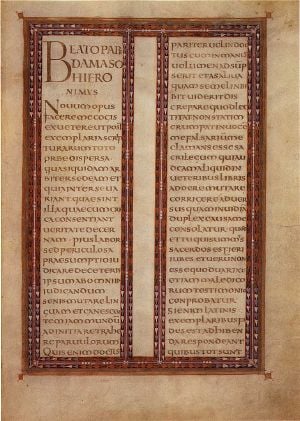 BEATO PAP
DAMASO
HIERO
NIMUS
NOUUM OPUS
FACERE ME COGIS
EX UETERE UT POST
EXEMPLARIA SCRIP
TURARUM TOTO
ORBE DISPERSA
QUASI QUIDAM AR
BITER SEDEAM ET
QUIA INTER SE UA
RIANT QUAE SINT
ILLA QUAE CUM GRAE
CA CONSENTIANT
UERITATE DECER
NAM PIUS LABOR
SED PERICULOSA
PRAESUMPTIO IU
DICARE DE CETERIS
IPSUM AB OMNIB
IUDICANDUM
SENIS MUTARE LIN
GUAM ET CANESCEN
TEM IAM MUNDUM
AD INITIA RETRAHE
RE PARUULORUM
QUIS ENIM DOCTUS
PARITER UEL INDOC
TUS CUM IN MANUS
UOLUMEN ADSUMP
SERIT ET A SALIUA
QUAM SEMEL INBI
BIT UIDERIT DIS
CREPARE QUOD LEC
TITAT NON STATIM
ERUMPAT IN UOCEM
ME FALSARIUM ME
CLAMANS ESSE SA
CRILEGUM QUI AU
DEAM ALIQUID IN
UETERIBUS LIBRIS
ADDERE MUTARE
CORRIGERE ADUER
SUS QUAM INUIDIAM
DUPLEX CAUSA ME
CONSOLATUR QUOD
ET TU QUI SUMMUS
SACERDOS ES FIERI
IUBES ET UERUM NON
ESSE QUOD UARIAT
ETIAM MALEDICO
RUM TESTIMONIO
CONPROBATUR
SI ENIM LATINIS
EXEMPLARIBUS FI
DES EST ADHIBEN
DA RESPONDEANT
QUIBUS TOT SUNT